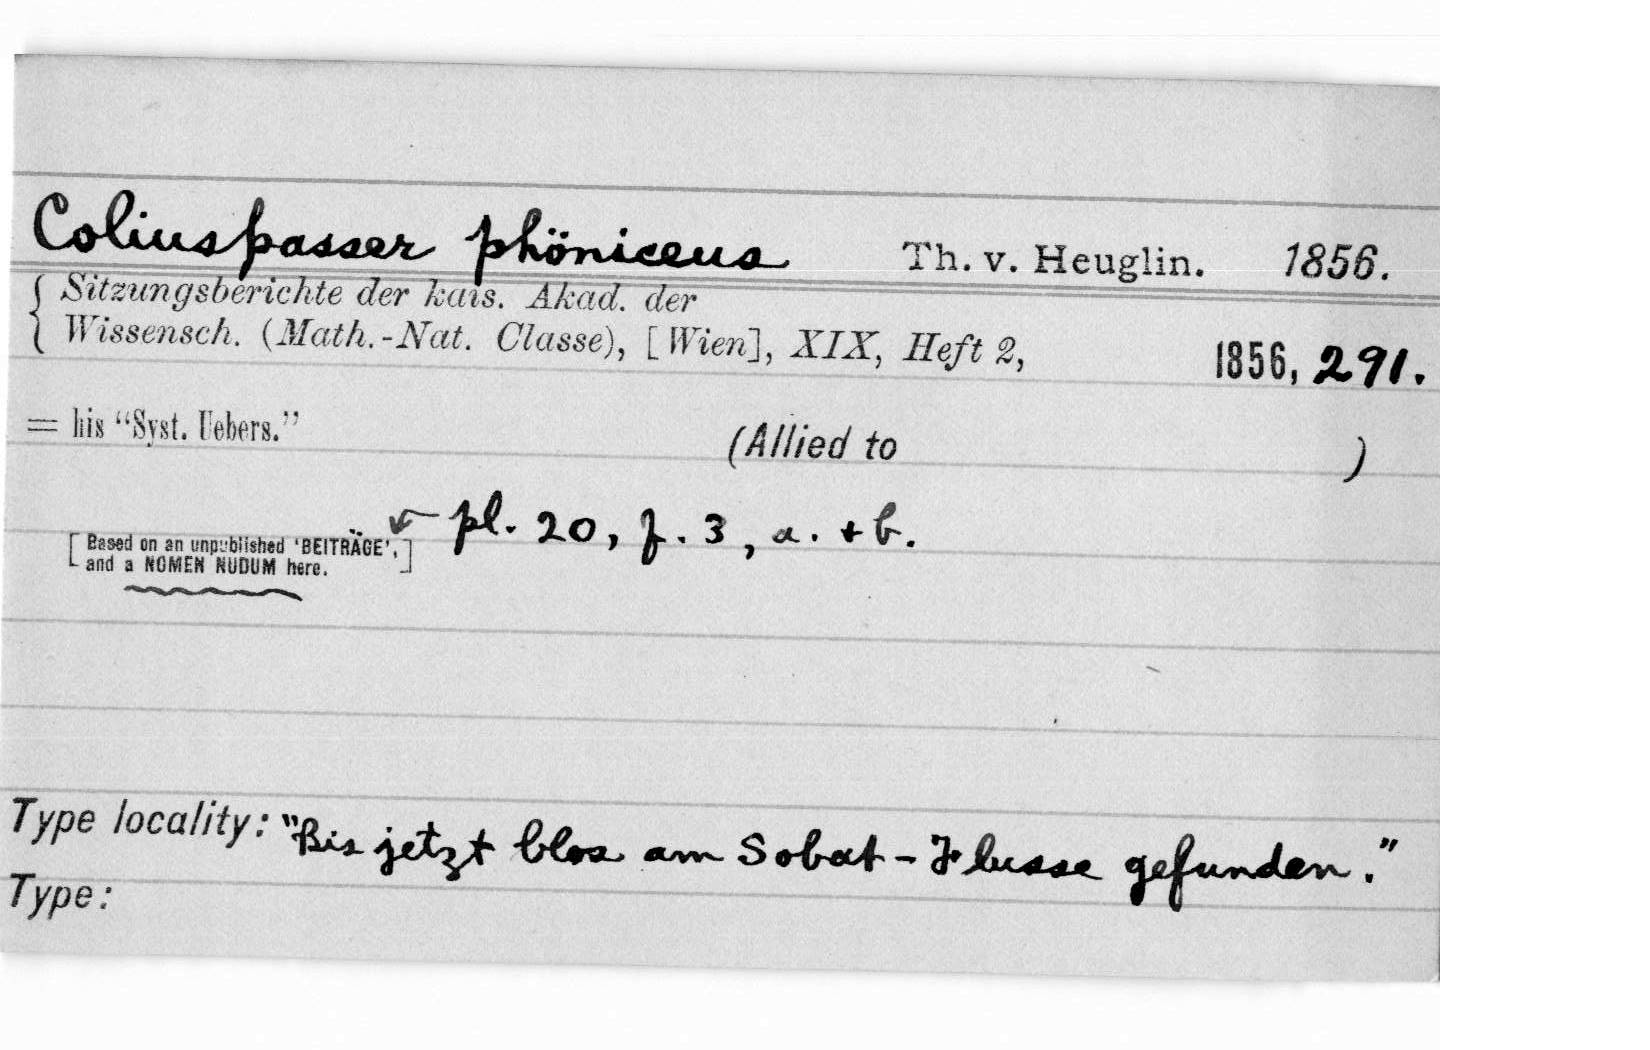 Coliuspasser phöniceus Th. v. Heuglin. 1856.
Sitzungsberichte der kais. Akad. der
Wissensch. (Math.-Nat. Classe), [Wien], XIX, Heft 2, 1856, 291.
= his “Syst. Uebers.” (Allied to )
pl. 20, f. 3, a. + b.
[Based on an unpublished 'BEITRÄGE',
and a NOMEN NUDUM here.]
Type locality: "Bis jetzt blos am Sobat-Flusse gefunden."
Type: